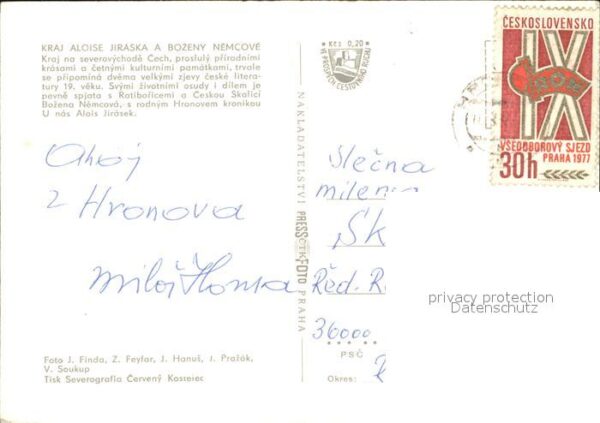 KRAJ ALOISE JIRÁSKA A BOŽENY NĚMCOVÉ
Kraj na severovýchodě Čech, proslulý přírodními
krásami a četnými kulturními památkami, trvale
se připomíná dvěma velkými zjevy české litera-
tury 19. věku. Svými životními osudy i dílem je
pevně spjata s Ratibořicemi a Českou Skalicí
Božena Němcová, s rodným Hronovem kronikou
U nás Alois Jirásek.
Ahoj
z Hronova
Miloš
Foto J. Finda, Z. Feyfar, J. Hanuš, J. Pražák,
V. Soukup
Tisk Severografia Červený Kostelec
NAKLADATELSTVÍ PRESSFOTO PRAHA
ČTK
Kčs 0,20
VE PROSPĚCH CESTOVNÍHO RUCHU
ČESKOSLOVENSKO
IX
ROH
VŠEODBOROVÝ SJEZD
PRAHA 1977
30h
Slečna
milena
Šk
Řed. R
36000
PSČ
Okres:
privacy protection
Datenschutz